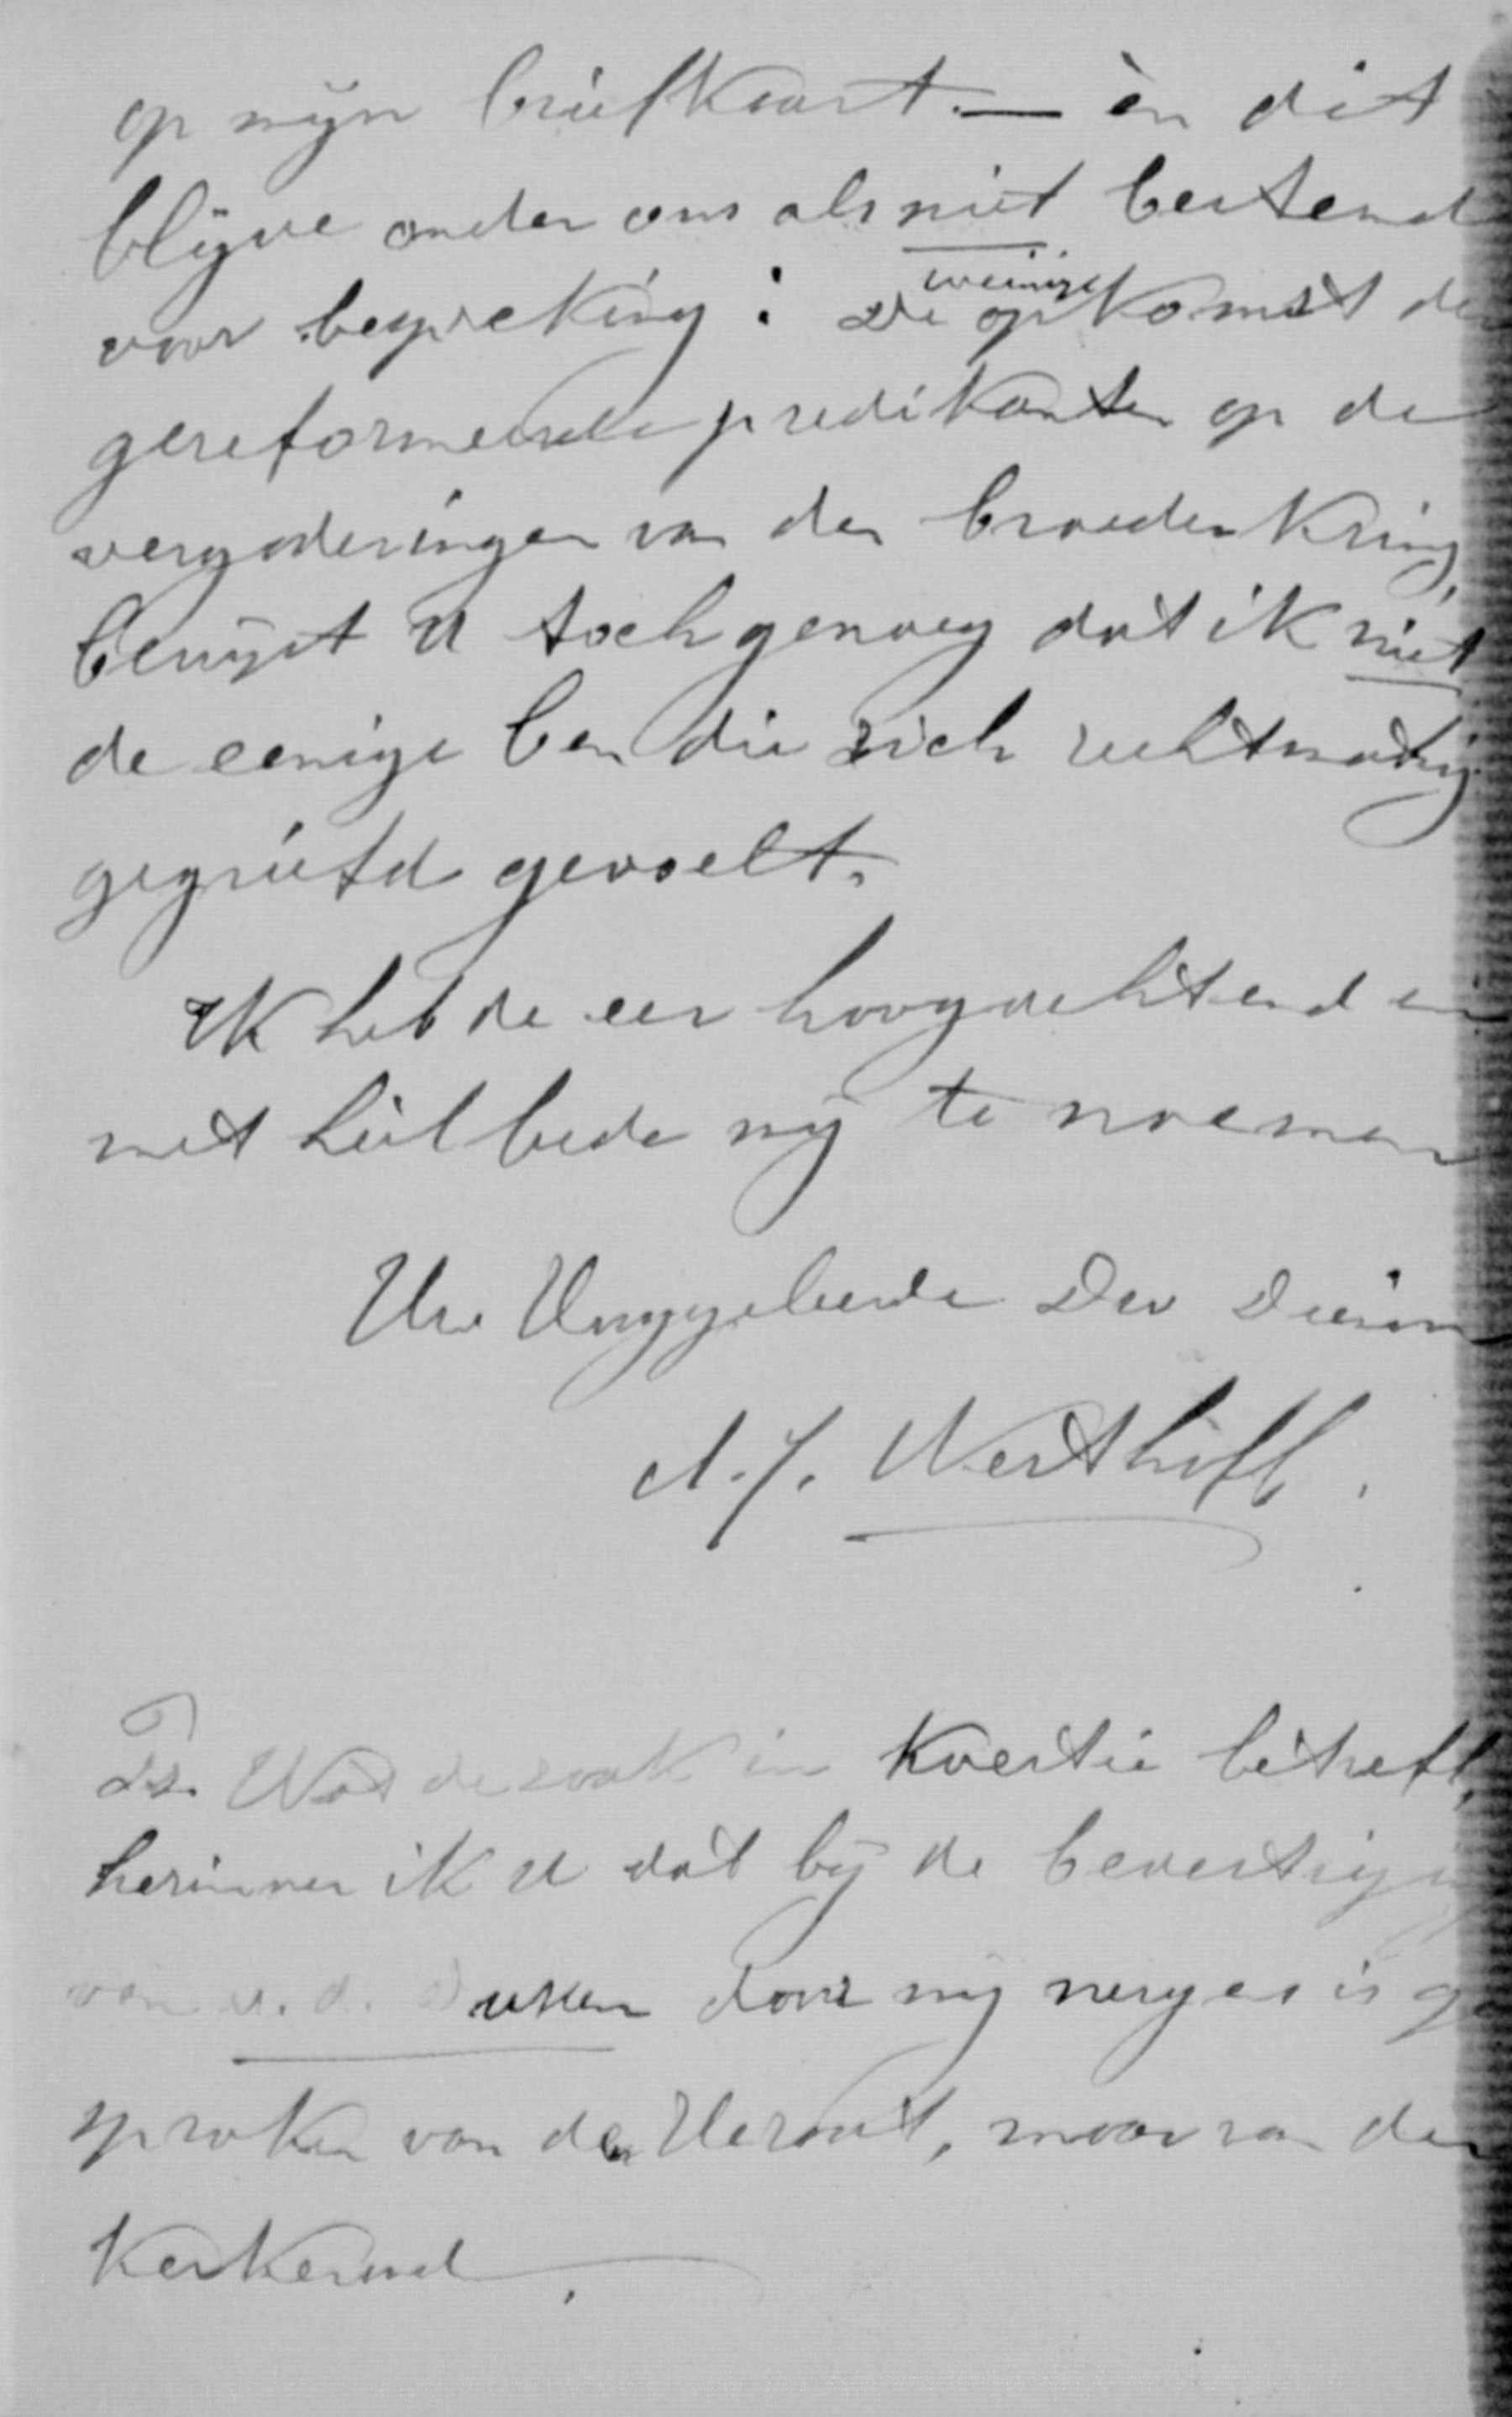 op mijn briefkaart. — èn dit
blijve onder ons als niet bestemd
voor bespreking: De weinige opkomst der
gereformeerde predikanten op de
vergaderingen van den broederkring,
bewijst U toch genoeg dat ik niet
de eenige ben die zich rechtmatig
gegriefd gevoelt.
Ik heb de eer hoogachtend en
met heilbede mij te noemen
Uw Hooggeleerde Dw Dienaar
A.J. Westhoff.
Ps. Wat de zaak in kwestie betreft,
herinner ik U dat bij de bevestiging
van v. d. door mij nergens is ge
sproken van den Heraut, maar van den
Kerkeraad.